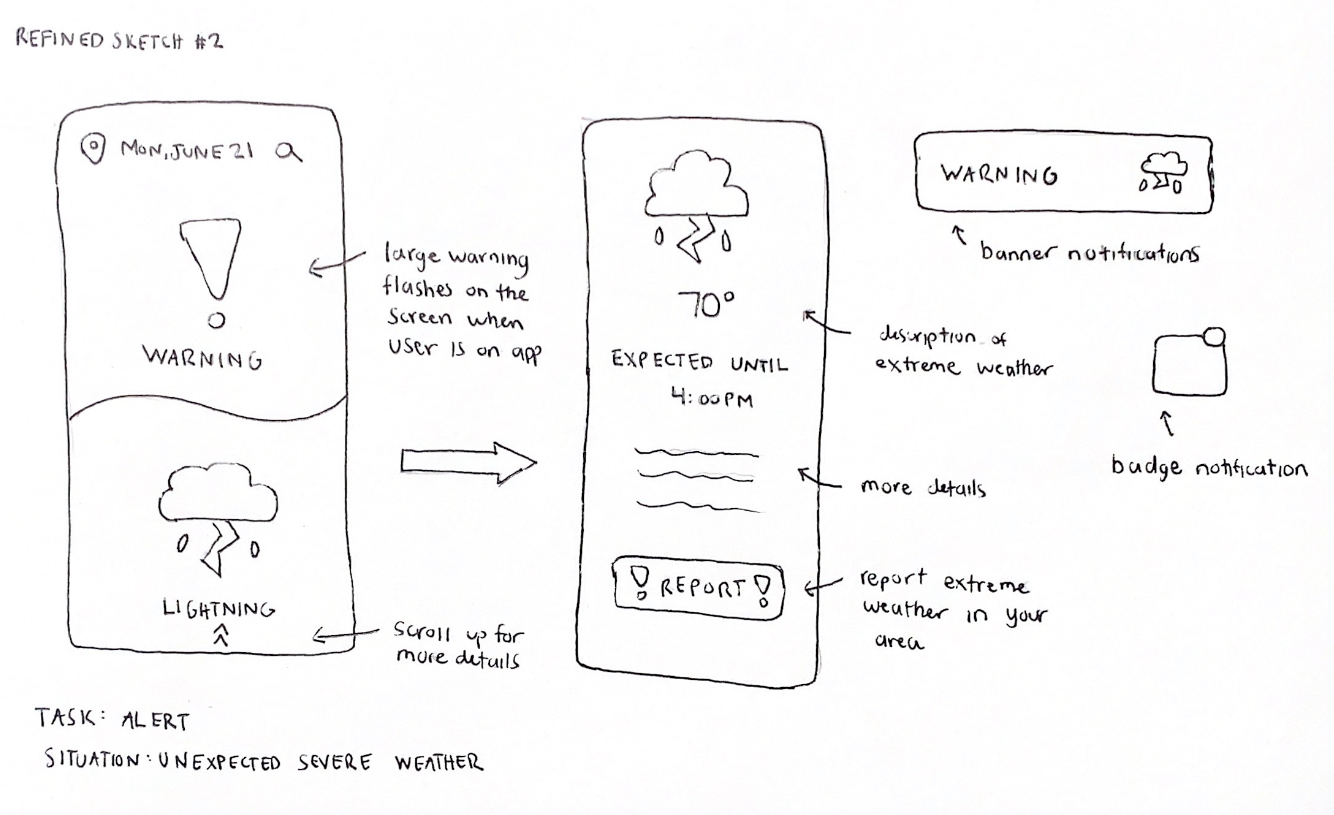 REFINED SKETCH #2
MON, JUNE 21
WARNING
LIGHTNING
large warning
flashes on the
screen when
user is on app
scroll up for
more details
70°
EXPECTED UNTIL
4:00PM
REPORT
description of
extreme weather
more details
report extreme
weather in your
area
WARNING
banner notifications
badge notification
TASK: ALERT
SITUATION: UNEXPECTED SEVERE WEATHER